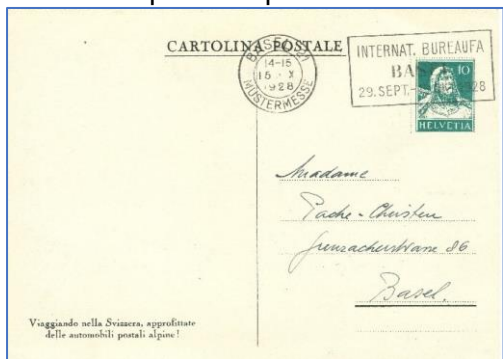 CARTOLINA POSTALE
BASEL 21
14-15
15 · X
1928
MUSTERMESSE
INTERNAT. BUREAUFA
BA
29. SEPT.-
28
10
HELVETIA
Madame
Pache-Christen
Grenzacherstrasse 86
Basel.
Viaggiando nella Svizzera, approfittate
delle automobili postali alpine!